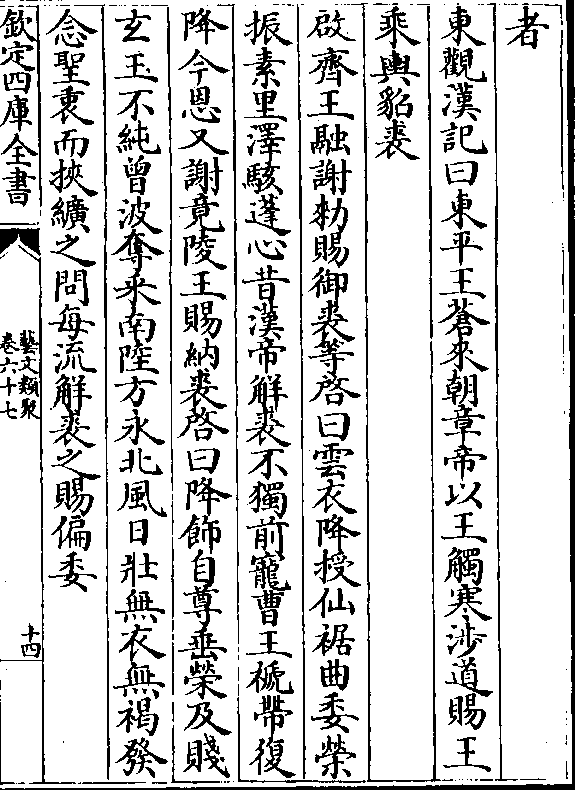 者
東觀漢記曰東平王蒼來朝章帝以王觸寒涉道賜王
乘輿貂裘
啟齊王融謝勑賜御裘等啓曰雲衣降授仙裾曲委榮
振素里澤駭蓬心昔漢帝解裘不獨前寵曹王褫帶復
降今恩又謝竟陵王賜納裘啓曰降飾自尊垂榮及賤
玄玉不純曾波奪采南陸方永北風日壯無衣無褐發
念聖衷而挾纊之問每流解裘之賜偏委
欽定四庫全書
藝文類聚
卷六十七
十四